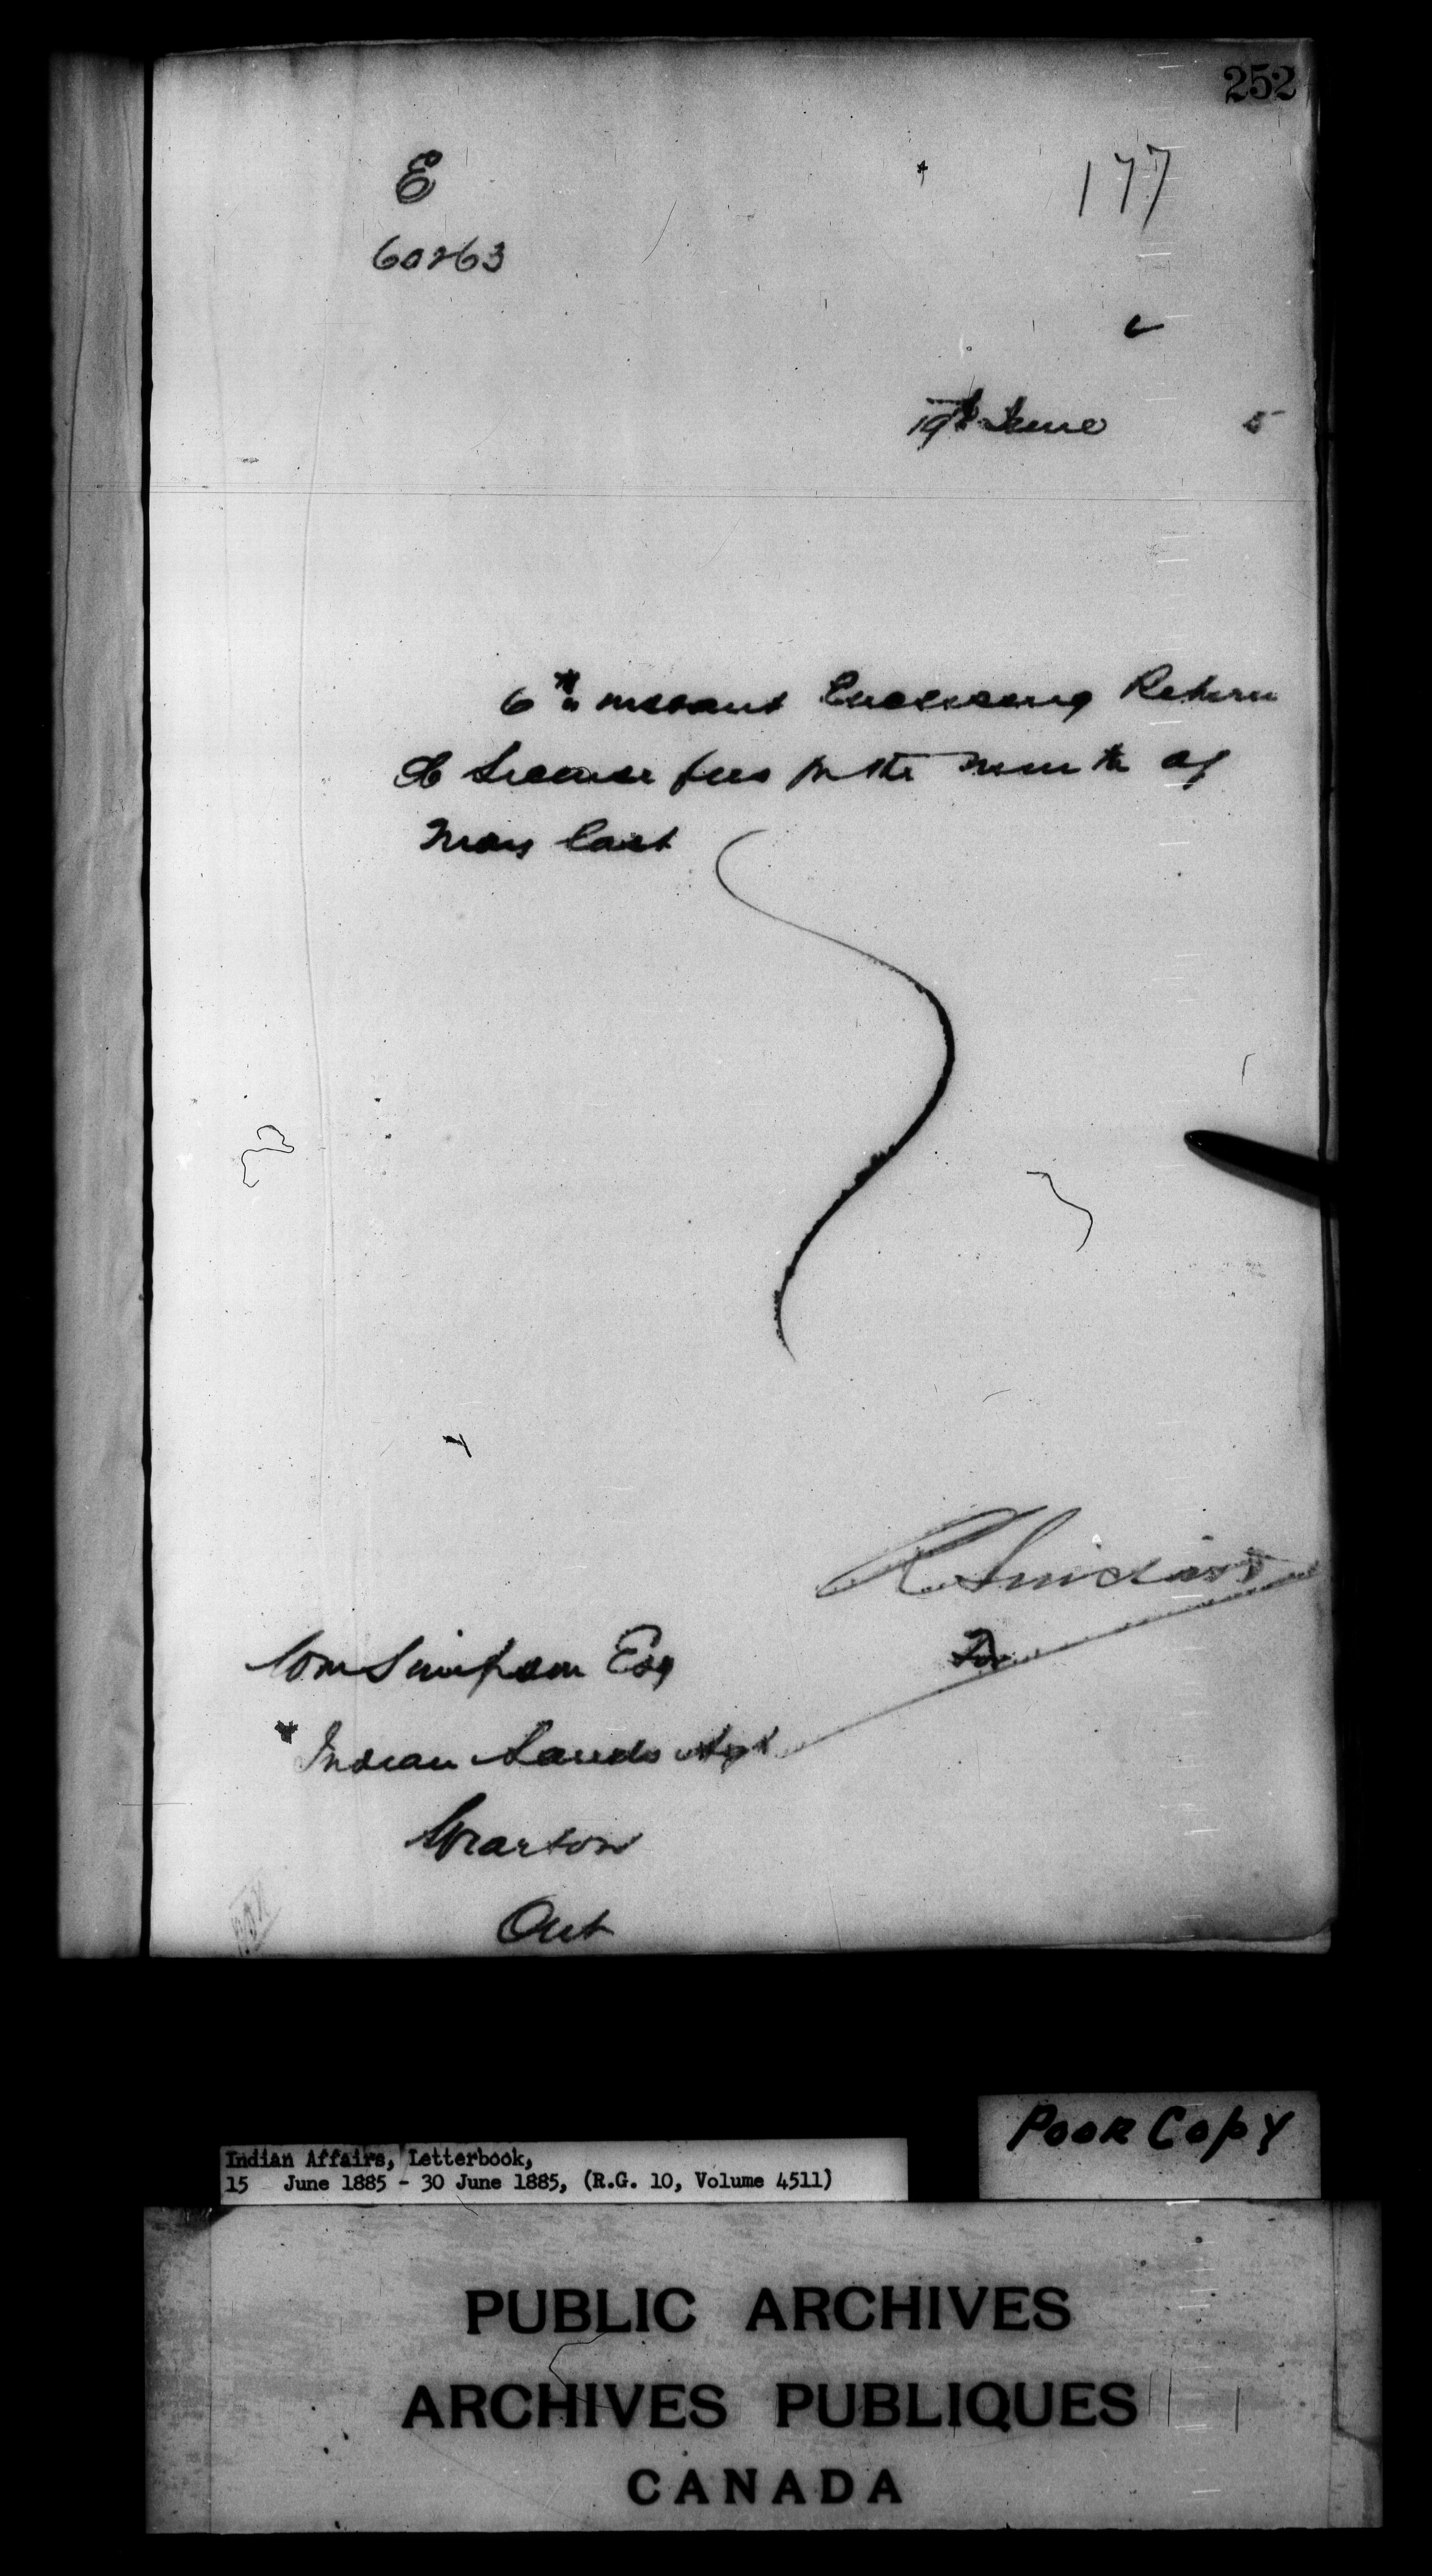 252
E
177
60263
19th June 5
6th instant Enclosing Return
of License fees for the month of
May last
R. Sinclair
For
Wm Simpson Esq
Indian Lands Agt
Wiarton
Ont
Poor Copy
Indian Affairs, Letterbook,
15 June 1885 - 30 June 1885, (R.G. 10, Volume 4511)
PUBLIC ARCHIVES
ARCHIVES PUBLIQUES
CANADA